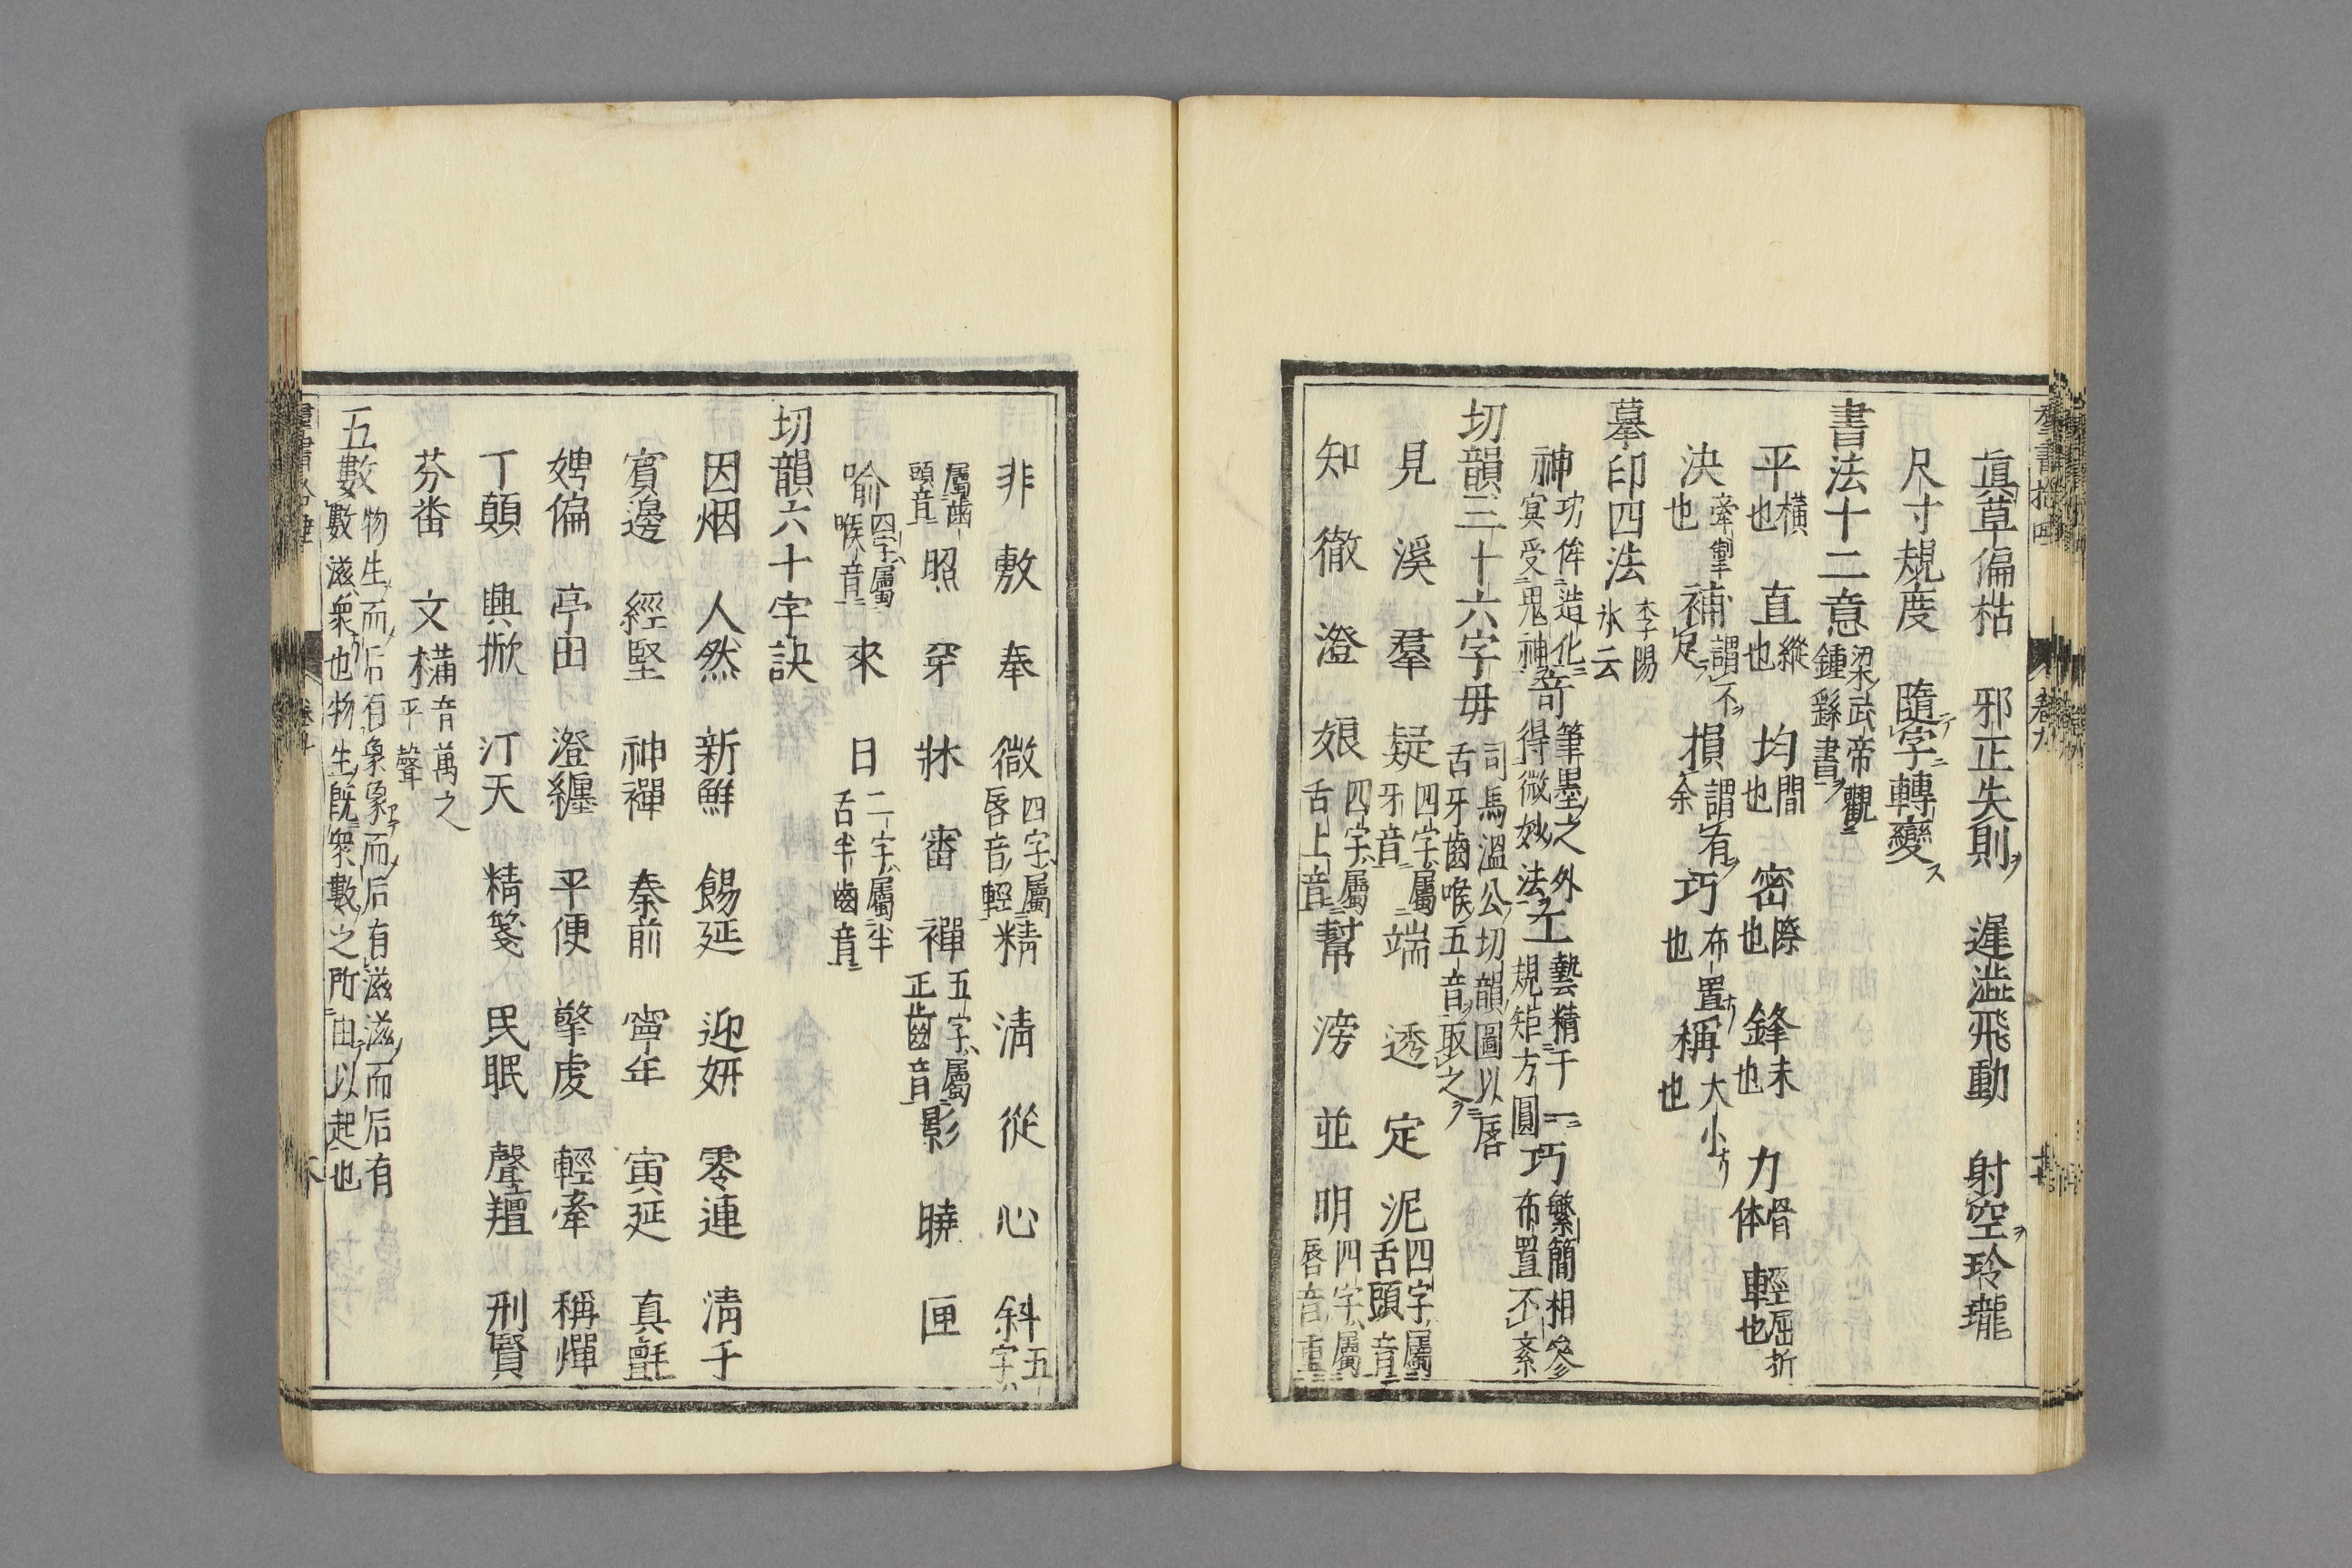 眞草偏枯　邪正失則ヲ　遲澁飛動　射空ヲ玲瓏
尺寸規度　隨テ字ニ轉變ス
書法十二意梁武帝觀鍾繇書ヲ
平橫也　直縱也　均間也　密際也　鋒末也　力骨体　輕屈折也
決牽掣也　補謂不ヲ足　損謂有ヲ余　巧布置也　稱大小也
摹印四法李陽氷云
神功侔造化冥受鬼神　奇筆墨之外得微妙法ヲ　工藝精于一規矩方圓　巧繁簡相參布置不紊
切韻三十六字毋司馬溫公切韻圖以唇舌牙齒喉五音取之ヲ
見　溪　羣　疑四字屬牙音　端　透　定　泥四字屬舌頭音
知　徹　澄　娘四字屬舌上音　幫　滂　並　明四字屬唇音重
非　敷　奉　微四字屬唇音輕　精　清　從　心　斜五字
屬齒頭音　照　穿　牀　審　禪五字屬正齒音　影　曉　匣
喻四字屬喉音　來　日二字屬半舌半齒音
切韻六十字訣
因烟　人然　新鮮　餳延　迎妍　零連　清千
賓邊　經堅　神禪　秦前　寧年　寅延　真氈
娉偏　亭田　澄纏　平便　擎虔　輕牽　稱燀
丁顛　興掀　汀天　精箋　民眠　聲羶　刑賢
芬番　文構音萬之平聲
五數物生而后有象象而后有滋滋而后有數數滋衆也物生既衆數之所由以起也